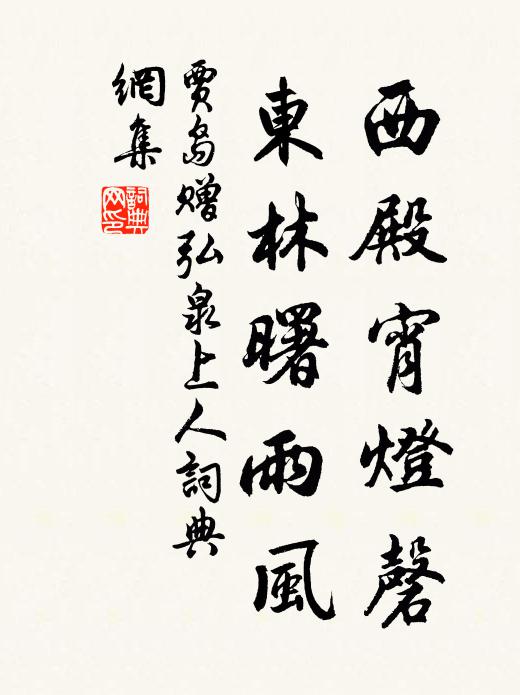 西殿宵燈磬
東林曙雨風
賈島贈弘泉上人詞典
網集
詞典
网印